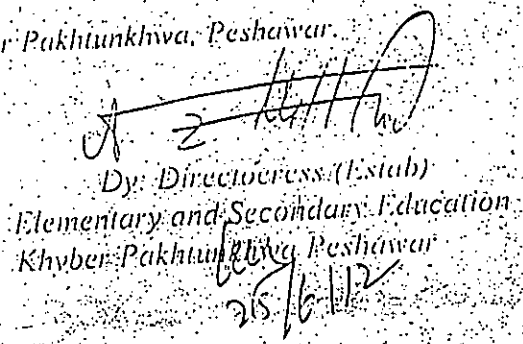 r Pakhtunkhwa, Peshawar.
Dy: Directoeress (Estab)
Elementary and Secondary Education
Khyber Pakhtunkhwa Peshawar
25/6/12